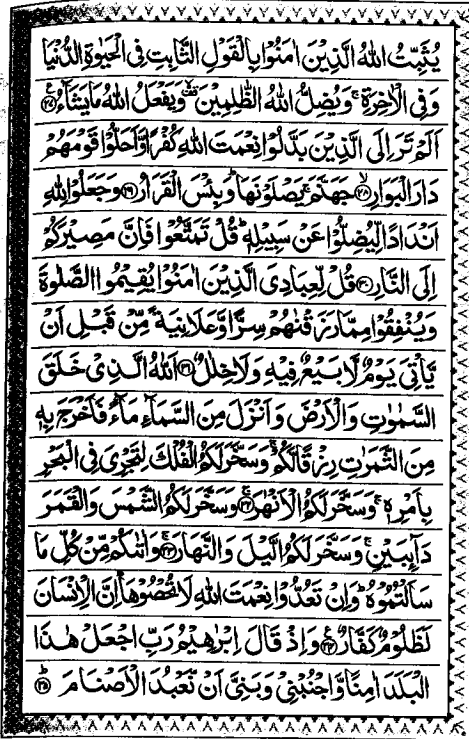 يُثَبِّتُ اللّٰهُ الَّذِيْنَ اٰمَنُوْا بِالْقَوْلِ الثَّابِتِ فِى الْحَيٰوةِ الدُّنْيَا
وَفِى الْاٰخِرَةِ ۚ وَيُضِلُّ اللّٰهُ الظّٰلِمِيْنَ ۙ وَيَفْعَلُ اللّٰهُ مَا يَشَآءُ ﴿۲۷﴾
اَلَمْ تَرَ اِلَى الَّذِيْنَ بَدَّلُوْا نِعْمَتَ اللّٰهِ كُفْرًا وَّاَحَلُّوْا قَوْمَهُمْ
دَارَ الْبَوَارِ ﴿۲۸﴾ جَهَنَّمَ ۚ يَصْلَوْنَهَا ؕ وَبِئْسَ الْقَرَارُ ﴿۲۹﴾ وَجَعَلُوْا لِلّٰهِ
اَنْدَادًا لِّيُضِلُّوْا عَنْ سَبِيْلِهٖ ؕ قُلْ تَمَتَّعُوْا فَاِنَّ مَصِيْرَكُمْ
اِلَى النَّارِ ﴿۳۰﴾ قُلْ لِّعِبَادِىَ الَّذِيْنَ اٰمَنُوْا يُقِيْمُوا الصَّلٰوةَ
وَيُنْفِقُوْا مِمَّا رَزَقْنٰهُمْ سِرًّا وَّعَلَانِيَةً مِّنْ قَبْلِ اَنْ
يَّاْتِىَ يَوْمٌ لَّا بَيْعٌ فِيْهِ وَلَا خِلٰلٌ ﴿۳۱﴾ اَللّٰهُ الَّذِىْ خَلَقَ
السَّمٰوٰتِ وَالْاَرْضَ وَاَنْزَلَ مِنَ السَّمَآءِ مَآءً فَاَخْرَجَ بِهٖ
مِنَ الثَّمَرٰتِ رِزْقًا لَّكُمْ ۚ وَسَخَّرَ لَكُمُ الْفُلْكَ لِتَجْرِىَ فِى الْبَحْرِ
بِاَمْرِهٖ ۚ وَسَخَّرَ لَكُمُ الْاَنْهٰرَ ﴿۳۲﴾ وَسَخَّرَ لَكُمُ الشَّمْسَ وَالْقَمَرَ
دَآئِبَيْنِ ۚ وَسَخَّرَ لَكُمُ الَّيْلَ وَالنَّهَارَ ﴿۳۳﴾ وَاٰتٰىكُمْ مِّنْ كُلِّ مَا
سَاَلْتُمُوْهُ ؕ وَاِنْ تَعُدُّوْا نِعْمَتَ اللّٰهِ لَا تُحْصُوْهَا ؕ اِنَّ الْاِنْسَانَ
لَظَلُوْمٌ كَفَّارٌ ﴿۳۴﴾ وَاِذْ قَالَ اِبْرٰهِيْمُ رَبِّ اجْعَلْ هٰذَا
الْبَلَدَ اٰمِنًا وَّاجْنُبْنِىْ وَبَنِىَّ اَنْ نَّعْبُدَ الْاَصْنَامَ ﴿۳۵﴾